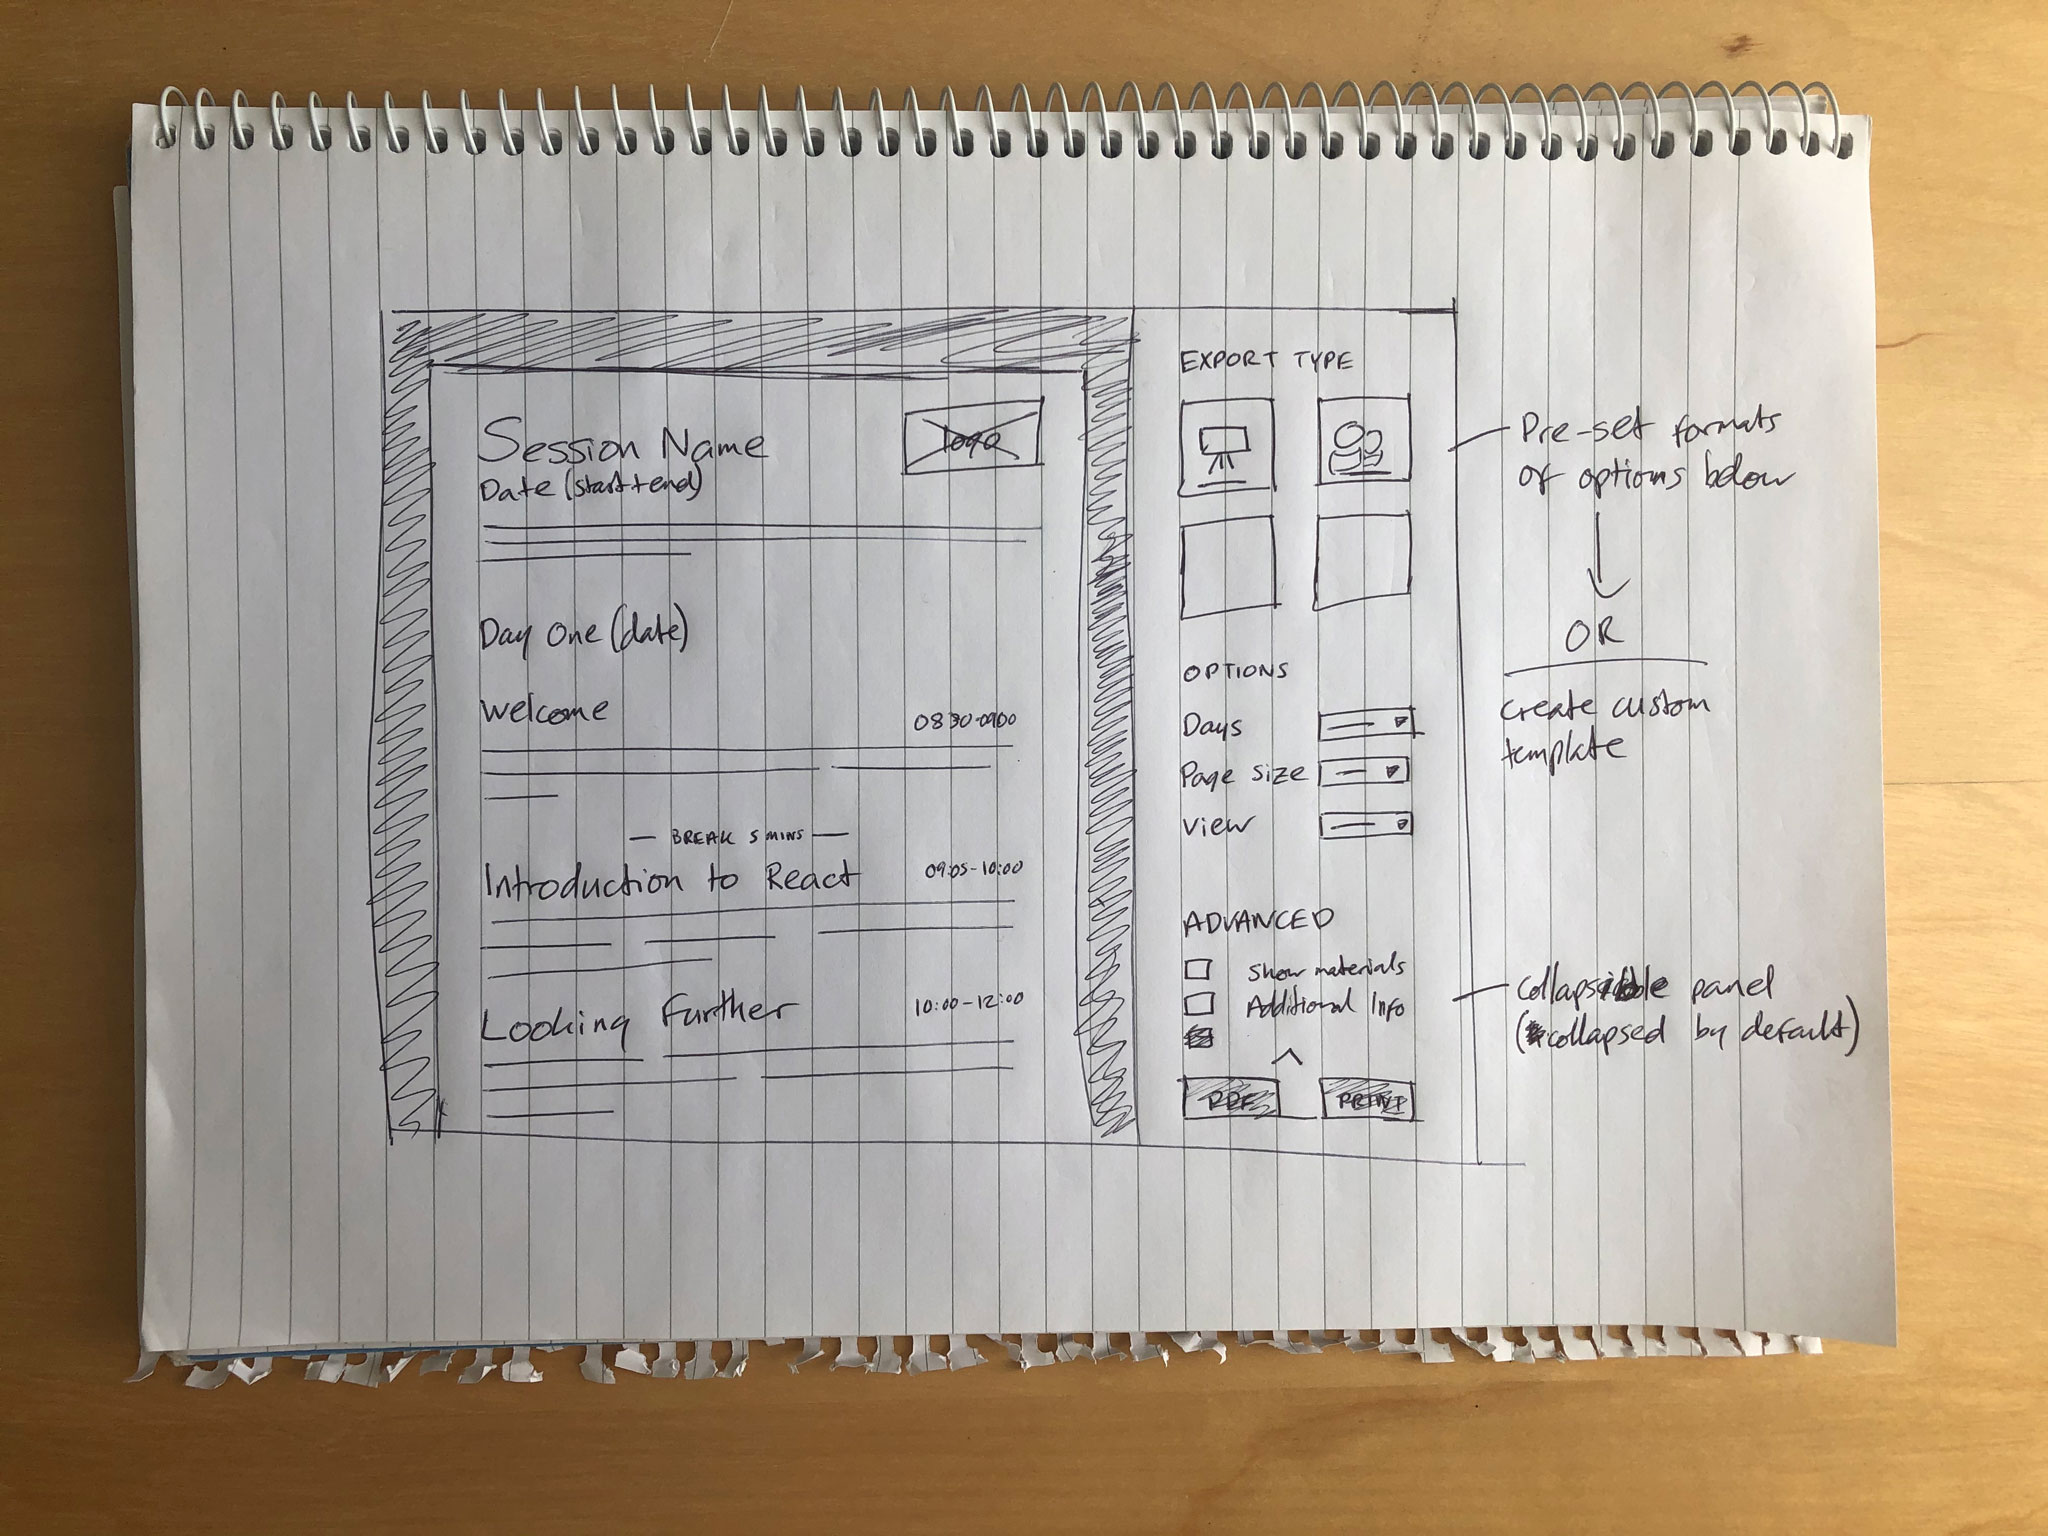 Session Name
logo
Date (start+end)
Day One (date)
Welcome
0830-0900
BREAK 5 MINS
Introduction to React
09:05-10:00
Looking Further
10:00-12:00
EXPORT TYPE
OPTIONS
Days
Page size
View
ADVANCED
Show materials
Additional Info
PDF
PRINT
Pre-set formats
of options below
OR
create custom
template
collapsible panel
(collapsed by default)